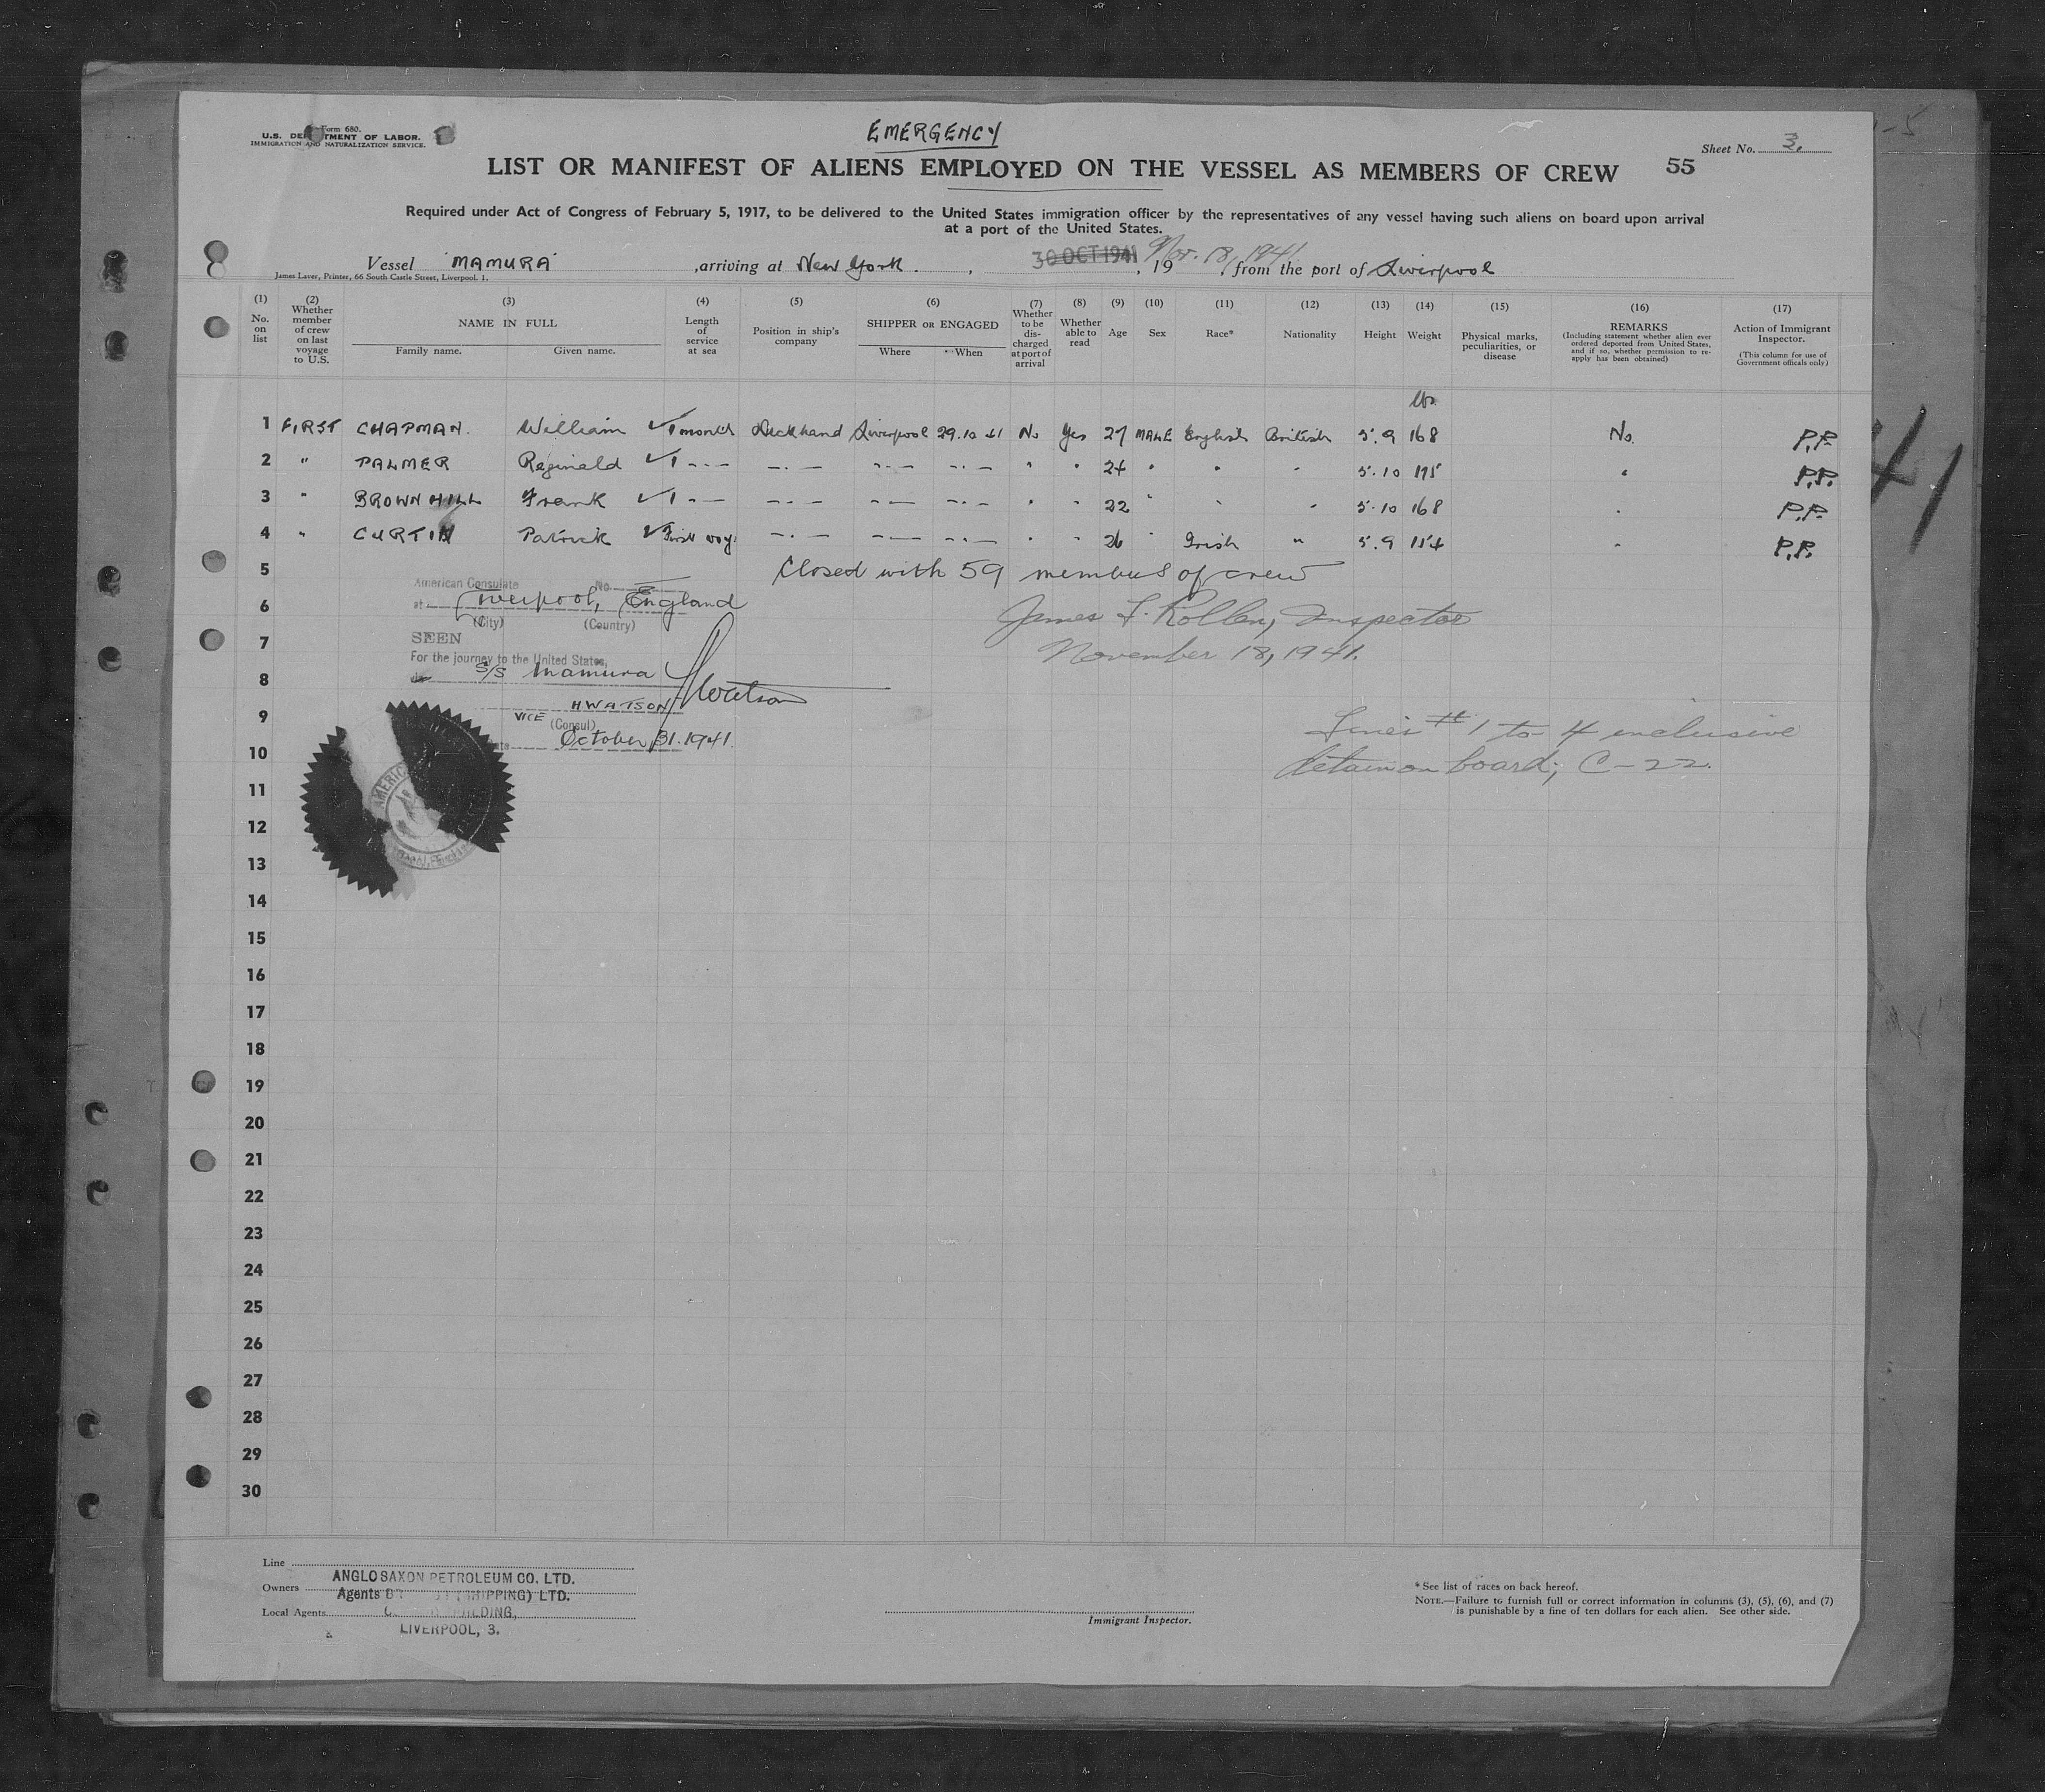 Form 680.
U.S. DEPARTMENT OF LABOR.
IMMIGRATION AND NATURALIZATION SERVICE.
EMERGENCY
Sheet No. 3.
LIST OR MANIFEST OF ALIENS EMPLOYED ON THE VESSEL AS MEMBERS OF CREW 55
Required under Act of Congress of February 5, 1917, to be delivered to the United States immigration officer by the representatives of any vessel having such aliens on board upon arrival
at a port of the United States.
Vessel MAMURA , arriving at New York , 30 OCT 1941 Nov. 18, 1941 , 19 , from the port of Liverpool
James Laver, Printer, 66 South Castle Street, Liverpool. 1.
(1) No. on list
(2) Whether member of crew on last voyage to U.S.
(3) NAME IN FULL Family name. Given name.
(4) Length of service at sea
(5) Position in ship's company
(6) SHIPPER OR ENGAGED Where When
(7) Whether to be dis-charged at port of arrival
(8) Whether able to read
(9) Age
(10) Sex
(11) Race*
(12) Nationality
(13) Height
(14) Weight
(15) Physical marks, peculiarities, or disease
(16) REMARKS (Including statement whether alien ever ordered deported from United States, and if so, whether permission to re-apply has been obtained)
(17) Action of Immigrant Inspector. (This column for use of Government officals only)
lbs.
1 FIRST CHAPMAN. William ✓ 1 month Deckhand Liverpool 29.10 41 No Yes 27 MALE English British 5.9 168 No. P.P.
2 " PALMER Reginald ✓ 1 -.- -.- -.- -.- " " 24 " " " 5.10 175 " P.P.
3 " BROWNHILL Frank ✓ 1 -.- -.- -.- -.- " " 22 " " " 5.10 168 " P.P.
4 " CURTIN Patrick ✓ First voy. -.- -.- -.- " " 26 " Irish " 5.9 154 " P.P.
5 Closed with 59 members of crew
American Consulate No.
6 at Liverpool, England
(City) (Country)
James F. Rollen, Inspector
7 SEEN
November 18, 1941.
For the journey to the United States,
8 S/S Mamura HWatson
9 H WATSON
VICE (Consul)
Date October 31. 1941.
Lines # 1 to 4 inclusive
10 detain on board; C-22.
11
12
13
14
15
16
17
18
19
20
21
22
23
24
25
26
27
28
29
30
41
Line
Owners ANGLO SAXON PETROLEUM CO. LTD.
Agents (SHIPPING) LTD.
Local Agents BUILDING,
LIVERPOOL, 3.
Immigrant Inspector.
* See list of races on back hereof.
NOTE.—Failure to furnish full or correct information in columns (3), (5), (6), and (7)
is punishable by a fine of ten dollars for each alien. See other side.